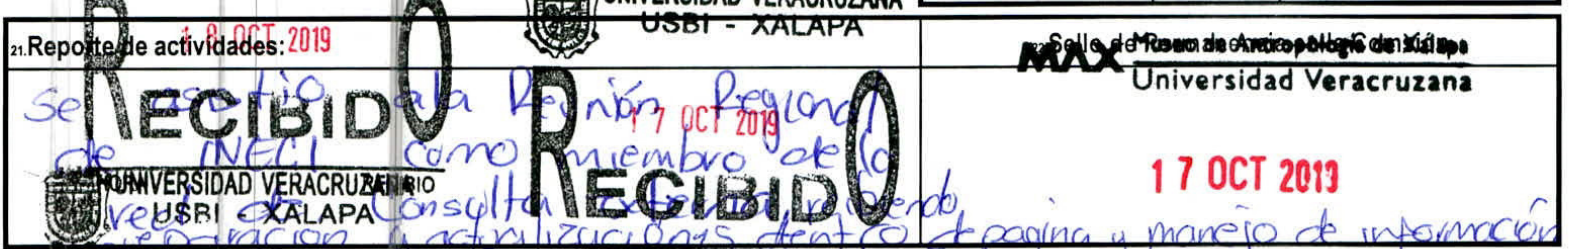 UNIVERSIDAD VERACRUZANA
USBI - XALAPA
21. Reporte de actividades:
18 OCT 2019
MAX Museo de Antropología de Xalapa
Universidad Veracruzana
RECIBIDO
17 OCT 2019
RECIBIDO
17 OCT 2019
UNIVERSIDAD VERACRUZANA
USBI - XALAPA
Se asistio a la Reunión Regional
de INECI como miembro de la
red de Consulta
y actualizaciones dentro de pagina y manejo de información